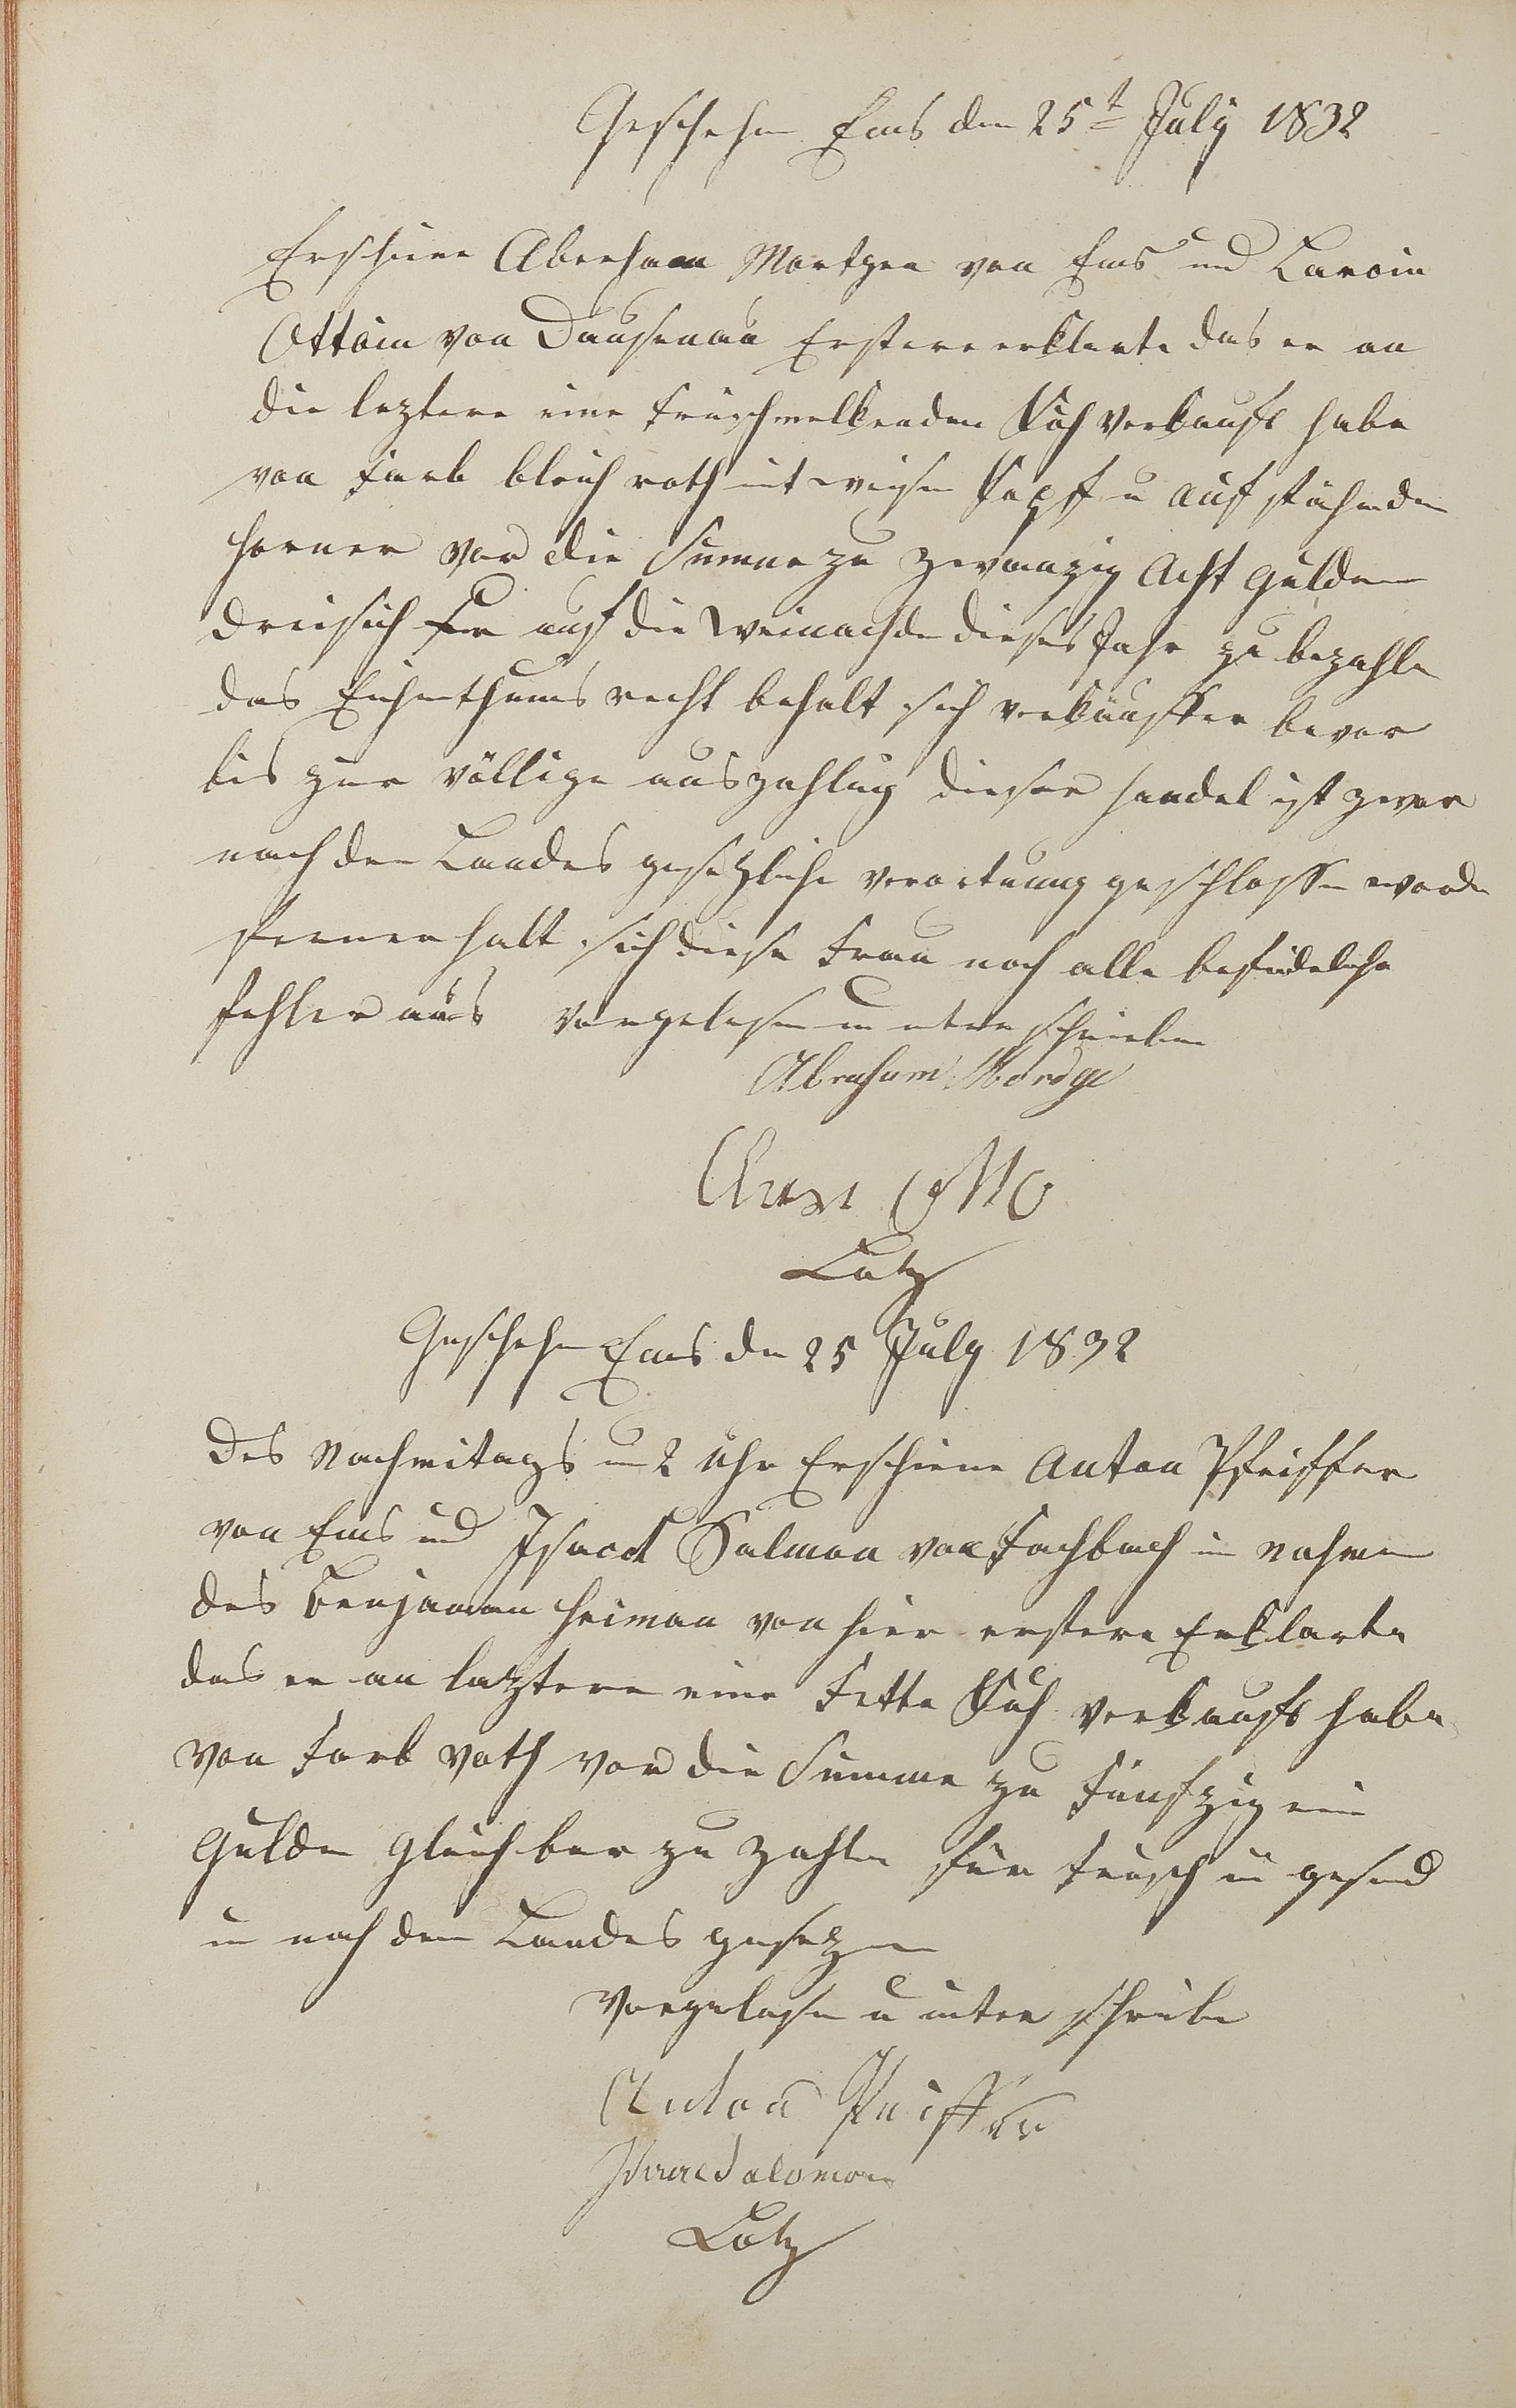 Geschehen Ems den 25t July 1832
Erschiene Abereham Mortgen von Ems und
Ottoin von Dausenau Erstere erklerte das er an
die leztere eine frischmelkenden Kuh verkauft habe
von farb bleich roth mit weisen Kopf u auf stähenden
horner vor die Summe zu zwanzig Acht Gulden
dreisich auf die Weinachde dieses Jahr zu bezahle
das Eichenthums recht behalt sich verkäuffer bevor
bis zur völlige auszahlug dieser handel ist zwar
nach den Landes gesetzliche verortnung geschlossen worde
ferner halt sich diese Frau noch alle befindeliche
fehler aus vorgelesen u unter schrieben
Abraham Mordge
Otto
Lotz
Geschehn Ems den 25 July 1832
des Nachmitags um 2 Uhr Erschiene Anton Pfeiffer
von Ems und Isaack Salmon von Fachbach im Nahmen
des Benjamen Heiman von hier erstere Erklarte
das er an leztere eine Fette Kuh verkauft habe
von farb roth vor die Summe zu Fünfzig ein
Gulden gleich bar zu zahlen für frisch u gesund
u nach den Landes gesezen
vorgelesen u unter schriebe
Anton Pfeiffer
Isaac Salomon
Lotz